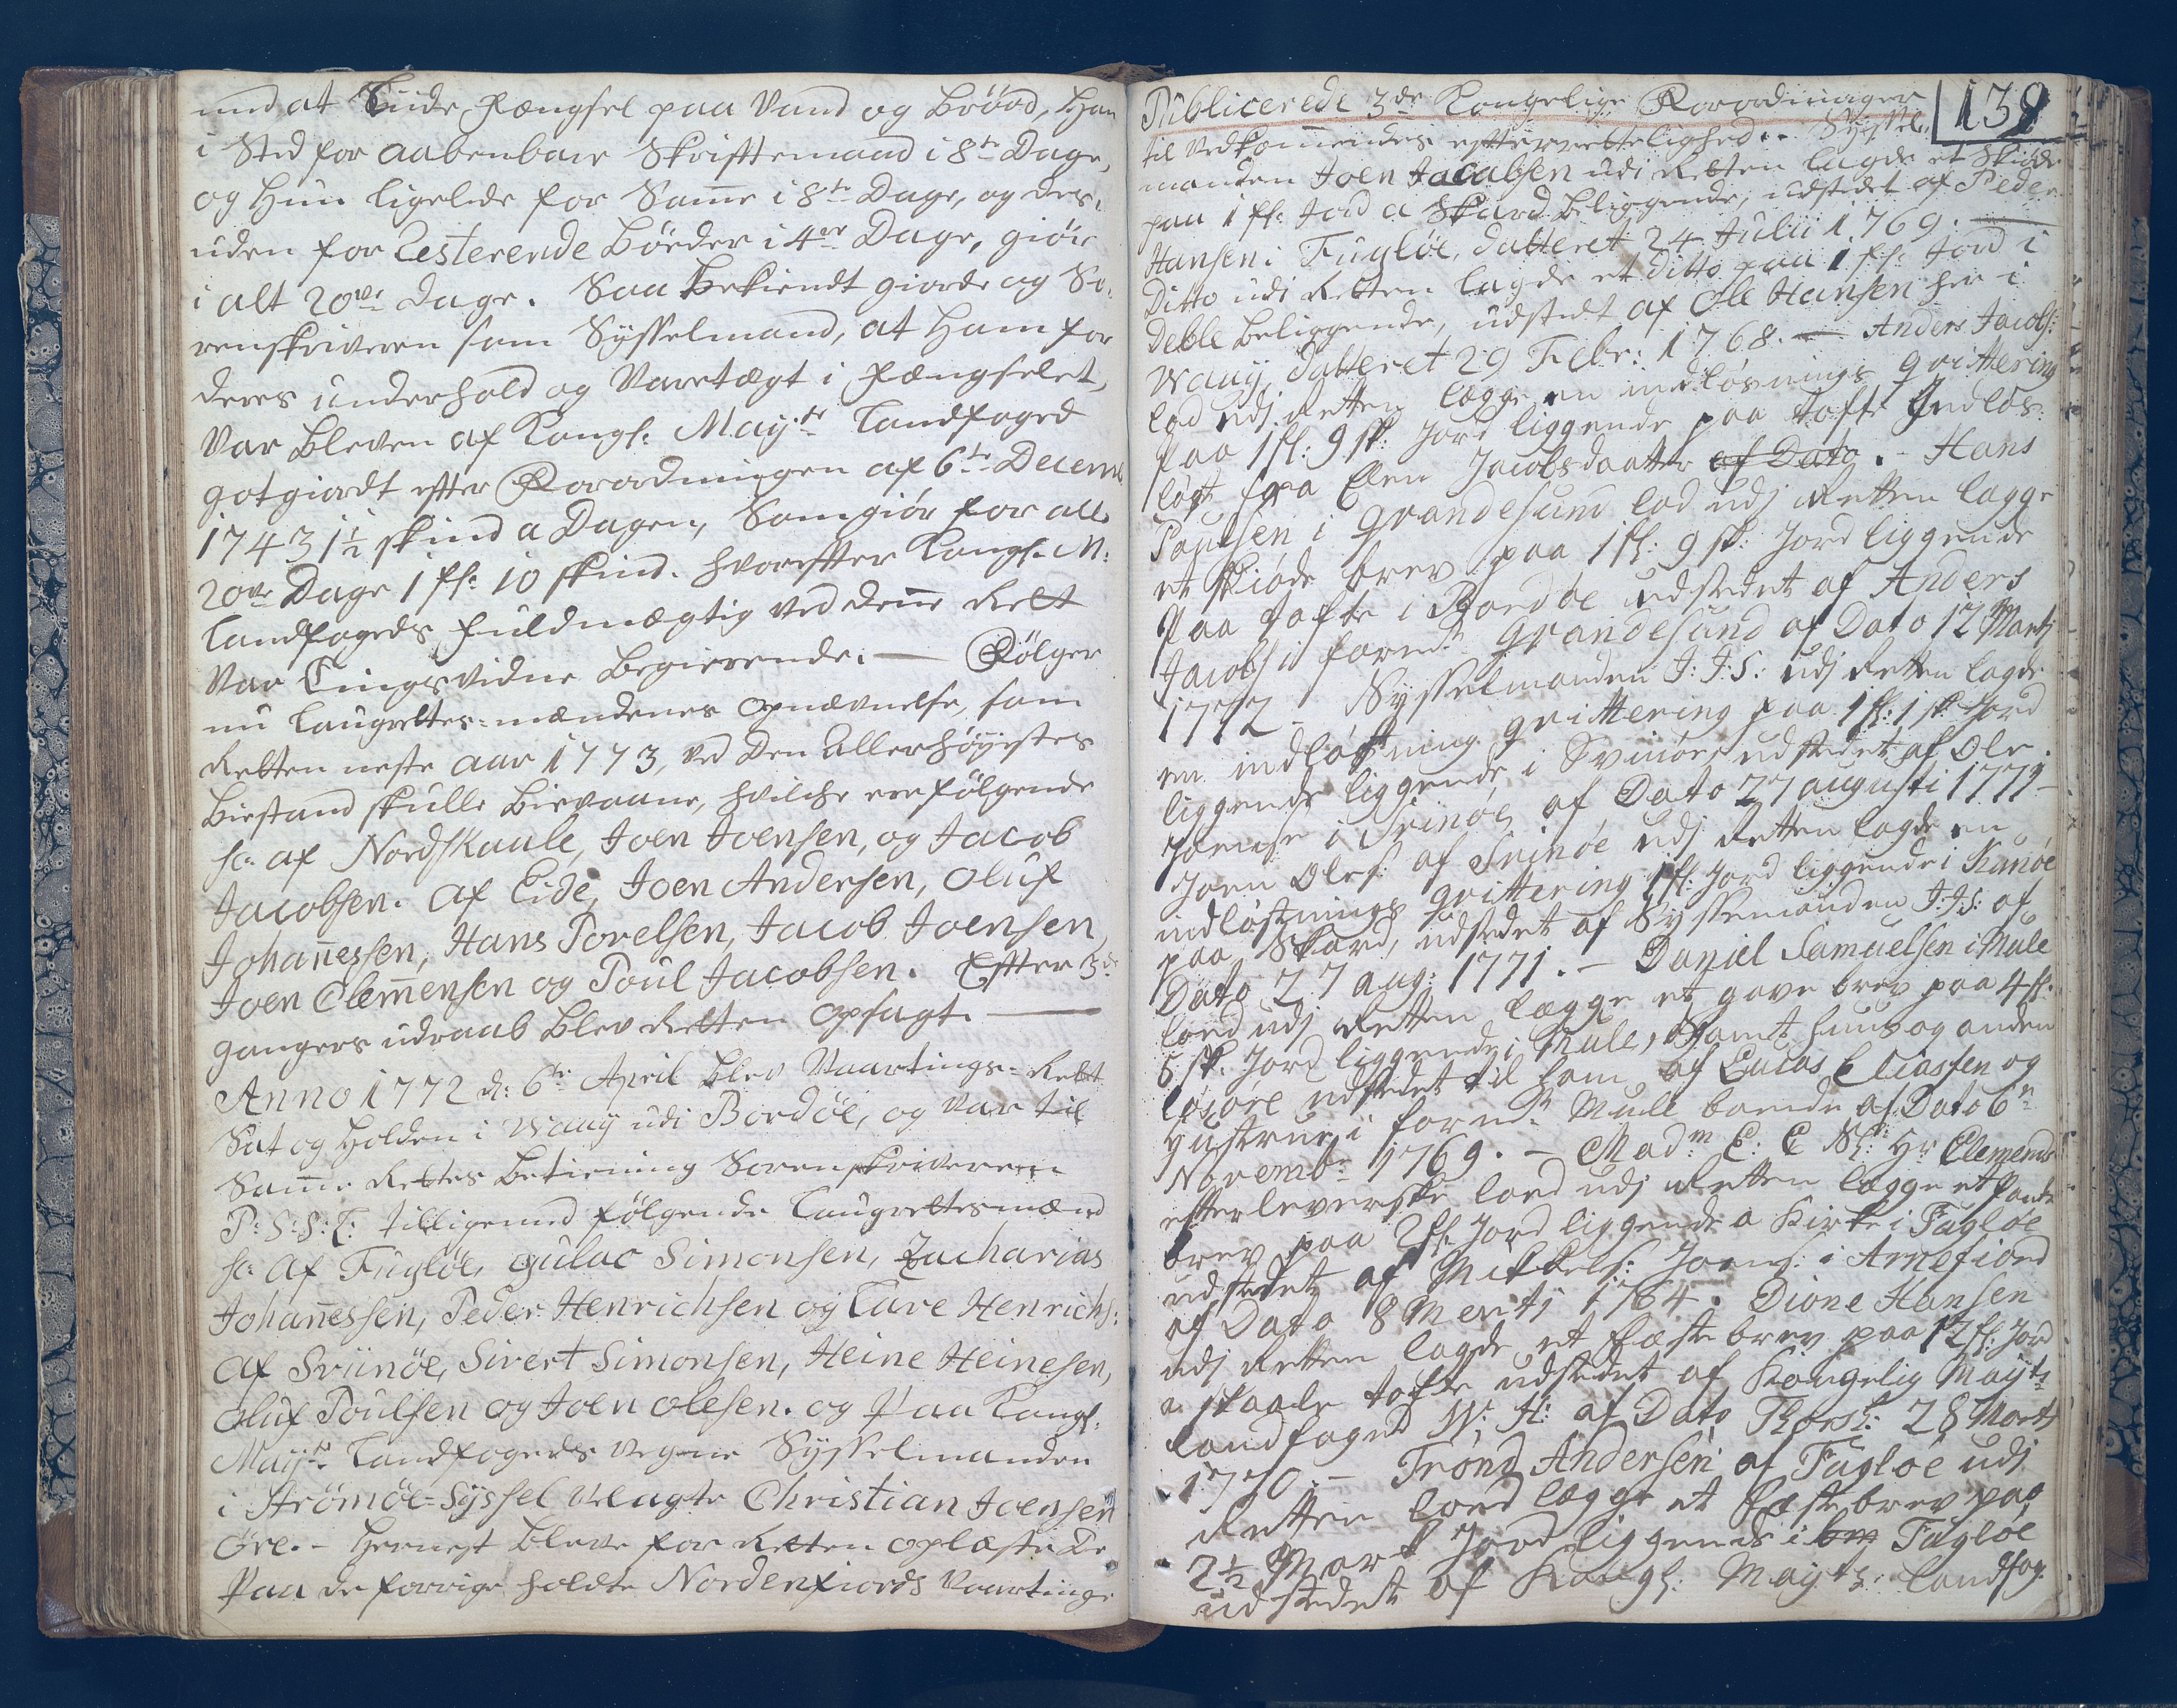 med at Liide Fængsel paa Vand og Brød, Han
i Sted for aabenbare Skriftemaal i 8te Dage,
og Hun ligeledes for Samme i 8te Dage, og des-
uden for Resterende Böeder i 4er Dage, giör
i alt 20ve Dage. Saa bekiendt giorde og So-
renskriveren som Sysselmand, at Ham for
deres underhold og Varetægt i Fængselet,
Var bleven af Kongl: Mayts Landfoged
gotgiordt efter Forordningen af 6te Decemb
1743 1½ skind a Dagen, Som giör for alle
20ve Dage 1 fl: 10 skind. hvorefter Kongl. M:
Landfogeds Fuldmægtig ved denne Rett
Var Tingsvidne Begierende. — Fölger
nu Laugrettes-mændenes opnævnelse, som
Retten neste Aar 1773, ved Den Allerhöyestes
Biestand skulle Bievaane, hvilche ere fölgende
sc: af Nordskaale, Joen Joensen, og Jacob
Jacobsen. af Eide, Joen Andersen, Oluf
Johan̄essen, Hans Porelsen, Jacob Joensen
Joen Clem̄ensen og Poul Jacobsen. Efter 3de
gangers udraab blev Retten opsagt. —
Anno 1772 d: 6te April blev Vaartings-Rett
Sat og Holden i Waaij udi Bordöe, og var til
Sam̄e Rettes Betiening Sorenskriveren
P: S: S: T: tilligemed fölgende Laugrettesmænd
sc: Af Fuglöe, Gulac Simonsen, Zacharias
Johan̄essen, Peder Henrichsen og Tare Henrichs:
Af Sviinöe, Sivert Simonsen, Heine Heinesen,
Oluf Poulsen og Joen Olesen. og Paa Kongl:
Mayts Landfogeds vegne Sysselmanden
i Strömöe-Syssel Velagte Christian Joensen
Öre. - Hernest bleve for Retten oplæste De
Paa de forrige holdte Nordenfiords Vaartinge
139
Publicerede 3de Kongelige Forordninger
til Vedkommendes efterrettelighed. - Syssel-
manden Joen Jacobsen udi Retten lagde et Skiöde
paa 1 fl: Jord a Skard beliggende, udstedet af Peder
Hansen i Fuglöe, datteret 24 Julii 1769. —
Ditto udi Retten lagde et ditto paa 1 fl: Jord i
Deble beliggende, udstedt af Ole Hansen her i
Waaij, datteret 29 Febr: 1768. — Anders Jacobs:
lod udj Retten lægge en indlösnings qvittering
Paa 1 fl: 9 sk: Jord liggende paa Tofte Indlös-
löst fra Elen Jacobsdaatter af Dato. - Hans
Poulsen i Grandesund lod udj Retten lægge
et skiöde brev paa 1 fl: 9 sk: Jord liggende
Paa Tofte i Bordöe udstedet af Anders
Jacobs: i formt Grandesund af Dato 12 Martj
1772 - Sysselmanden J: J: S: udj Retten lagde
en indlöstning qvittering paa 1 fl: 1 sk Jord
liggende liggende i Svinöe, udstedet af Ole
Joense i Svinöe af Dato 27 augusti 1771 -
Joen Oles: af Svinöe udj Retten lagde en
indlöstnings qvittering 1 fl: Jord liggende i Kunöe
paa Skard, udstedet af Sysselmanden J: J: S: af
Dato 27 aug: 1771. - Daniel Samuelsen i Mule
loed udj Retten lægge et gave brev paa 4 fl.
5 sk: Jord liggende i Mule, samt huus og anden
lösöre udstedet til ham af Lucas Eliassen og
Hustrue i formt: Mule boende af Dato 6te
Novembr 1769. - Madm E: C Sl: Hr Clemends
efterleverske loed udj Retten lægge et Pante
brev paa 2 fl: Jord liggende a Kirke i Fuglöe
udstedet af Mikkels: Joens: i Arnefiord
af Dato 8 Mertj 1764. Dione Hansen
udj Retten lagde et fæste brev paa 12 fl: Jord
a skaale tofte udstedet af Kongelig Mayts
Landfoged W: H: af Dato Thorsh: 28 Martj
1770. - Trönd Andersen af Fuglöe udj
Retten loed lægge et fæstebrev paa
2½ Mark Jord liggende i Fuglöe
udstedet af Kongl: Mayts Landfog: